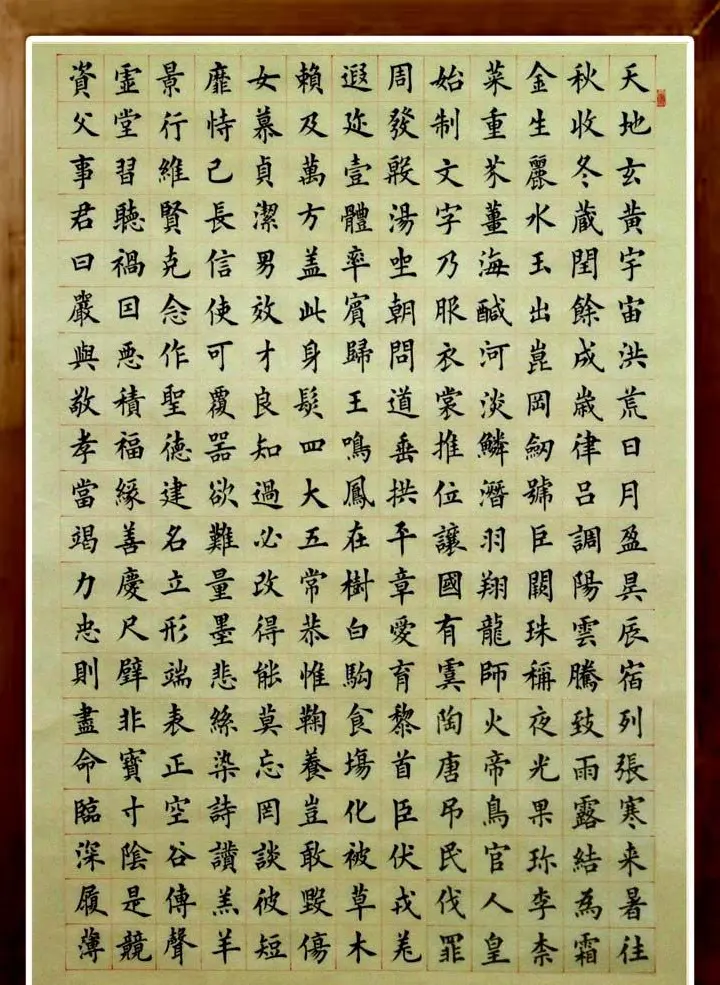 天地玄黃宇宙洪荒日月盈昃辰宿列張寒来暑往
秋收冬蔵閏餘成歲律呂調陽雲騰致雨露結為霜
金生麗水玉出崑岡劒號巨闕珠稱夜光果珎李柰
菜重芥薑海鹹河淡鱗潛羽翔龍師火帝鳥官人皇
始制文字乃服衣裳推位讓國有虞陶唐吊民伐罪
周發殷湯坐朝問道垂拱平章愛育黎首臣伏戎羌
遐迩壹體率賓歸王鳴鳳在樹白駒食場化被草木
賴及萬方盖此身髮四大五常恭惟鞠養豈敢毀傷
女慕貞潔男效才良知過必改得能莫忘罔談彼短
靡恃己長信使可覆器欲難量墨悲絲染詩讚羔羊
景行維賢克念作聖德建名立形端表正空谷傳聲
虛堂習聽禍因惡積福緣善慶尺璧非寶寸陰是競
資父事君曰嚴與敬孝當竭力忠則盡命臨深履薄